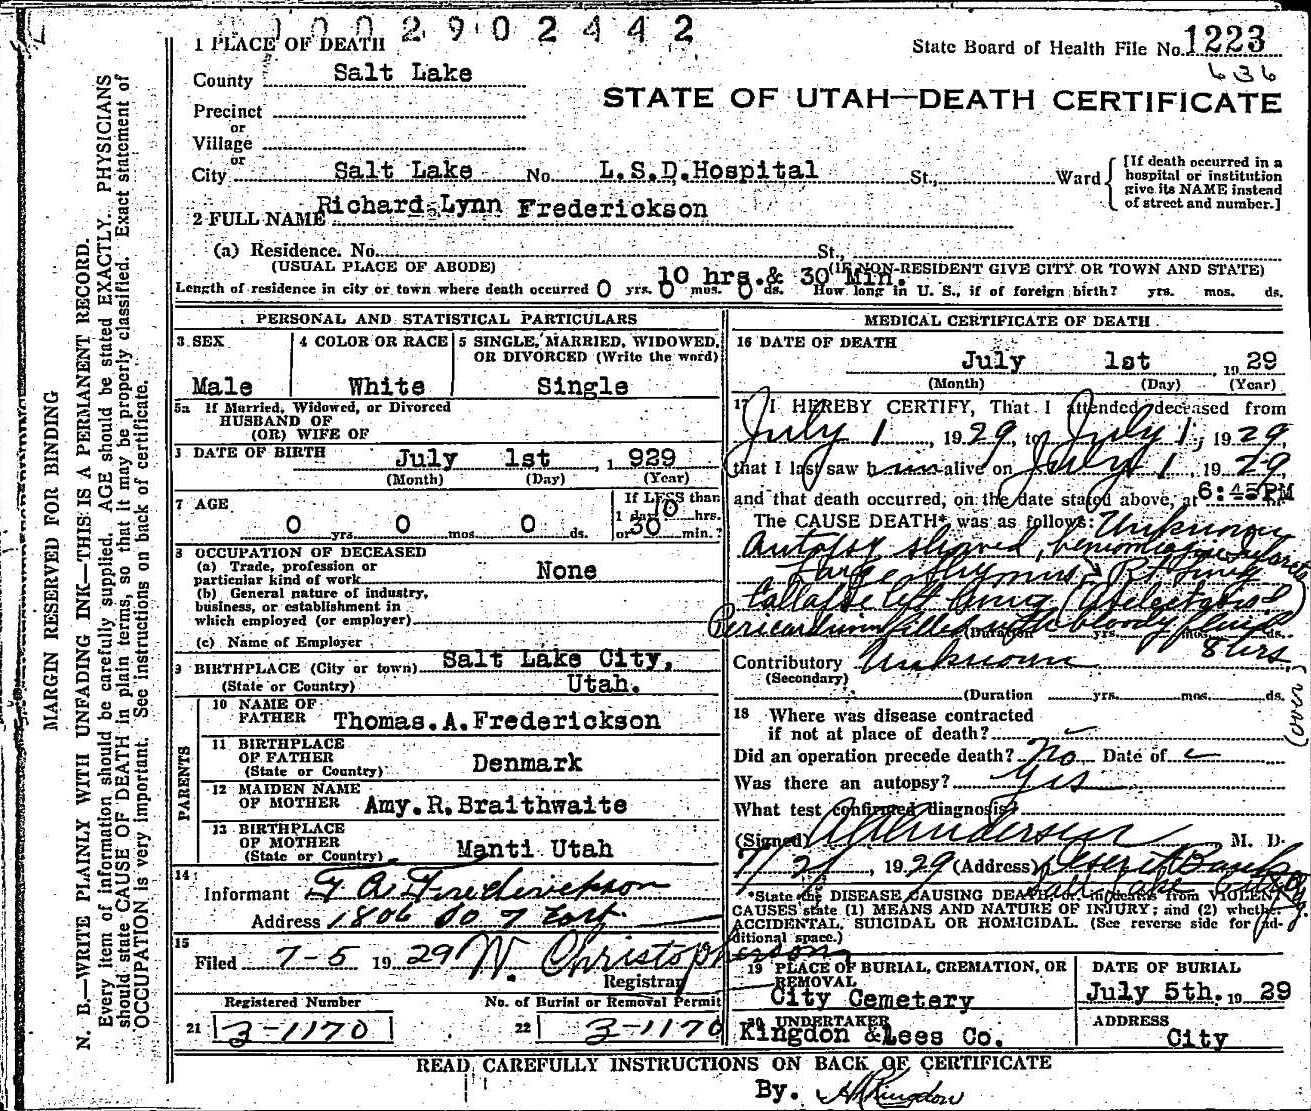 0002902442
1 PLACE OF DEATH
State Board of Health File No. 1223
636
County Salt Lake
STATE OF UTAH—DEATH CERTIFICATE
Precinct
or
Village
or
City Salt Lake No. L.S.D. Hospital St., Ward
[If death occurred in a hospital or institution give its NAME instead of street and number.]
2 FULL NAME Richard Lynn Frederickson
(a) Residence. No. St.,
(USUAL PLACE OF ABODE) (IF NON-RESIDENT GIVE CITY OR TOWN AND STATE)
10 hrs. & 30 Min.
Length of residence in city or town where death occurred 0 yrs. 0 mos. 0 ds. How long in U. S., if of foreign birth? yrs. mos. ds.
PERSONAL AND STATISTICAL PARTICULARS
3 SEX
Male
4 COLOR OR RACE
White
5 SINGLE, MARRIED, WIDOWED, OR DIVORCED (Write the word)
Single
5a If Married, Widowed, or Divorced
HUSBAND OF
(OR) WIFE OF
DATE OF BIRTH July 1st, 1929
(Month) (Day) (Year)
7 AGE
0 yrs. 0 mos. 0 ds.
If LESS than
1 day 10 hrs.
or 30 min.?
8 OCCUPATION OF DECEASED
(a) Trade, profession or
particular kind of work None
(b) General nature of industry,
business, or establishment in
which employed (or employer)
(c) Name of Employer
9 BIRTHPLACE (City or town) Salt Lake City,
(State or Country) Utah.
PARENTS
10 NAME OF
FATHER Thomas.A.Frederickson
11 BIRTHPLACE
OF FATHER
(State or Country) Denmark
12 MAIDEN NAME
OF MOTHER Amy.R.Braithwaite
13 BIRTHPLACE
OF MOTHER
(State or Country) Manti Utah
14
Informant T. A. Frederickson
Address 1806 So 7 East
15
Filed 7-5 1929 W. Christopherson
Registrar
Registered Number
21 3-1170
No. of Burial or Removal Permit
22 3-1170
MEDICAL CERTIFICATE OF DEATH
16 DATE OF DEATH
July 1st 1929
(Month) (Day) (Year)
17 I HEREBY CERTIFY, That I attended deceased from
July 1, 1929, to July 1, 1929,
that I last saw him alive on July 1, 1929
and that death occurred, on the date stated above, at 6:45PM
The CAUSE DEATH* was as follows: Unknown
Autopsy showed, hemorrhage
Large Thymus Rt Lung
Collapse left lung (Atelectasis)
Pericardium filled with bloody fluid
(Duration yrs. mos. ds.
8 hrs.
Contributory Unknown
(Secondary)
(Duration yrs. mos. ds.
(over)
18 Where was disease contracted
if not at place of death?
Did an operation precede death? No Date of
Was there an autopsy? Yes
What test confirmed diagnosis?
(Signed) Anderson M. D.
7/2, 1929 (Address) Deseret Bank Bldg
Salt Lake
*State the DISEASE CAUSING DEATH, or in deaths from VIOLENT
CAUSES state (1) MEANS AND NATURE OF INJURY; and (2) whether
ACCIDENTAL, SUICIDAL OR HOMICIDAL. (See reverse side for ad-
ditional space.)
19 PLACE OF BURIAL, CREMATION, OR
REMOVAL
City Cemetery
DATE OF BURIAL
July 5th. 1929
20 UNDERTAKER
Kingdon & Lees Co.
ADDRESS
City
READ CAREFULLY INSTRUCTIONS ON BACK OF CERTIFICATE
By. Kingdon
MARGIN RESERVED FOR BINDING
N. B.—WRITE PLAINLY WITH UNFADING INK—THIS IS A PERMANENT RECORD.
Every item of information should be carefully supplied. AGE should be stated EXACTLY. PHYSICIANS
should state CAUSE OF DEATH in plain terms, so that it may be properly classified. Exact statement of
OCCUPATION is very important. See instructions on back of certificate.